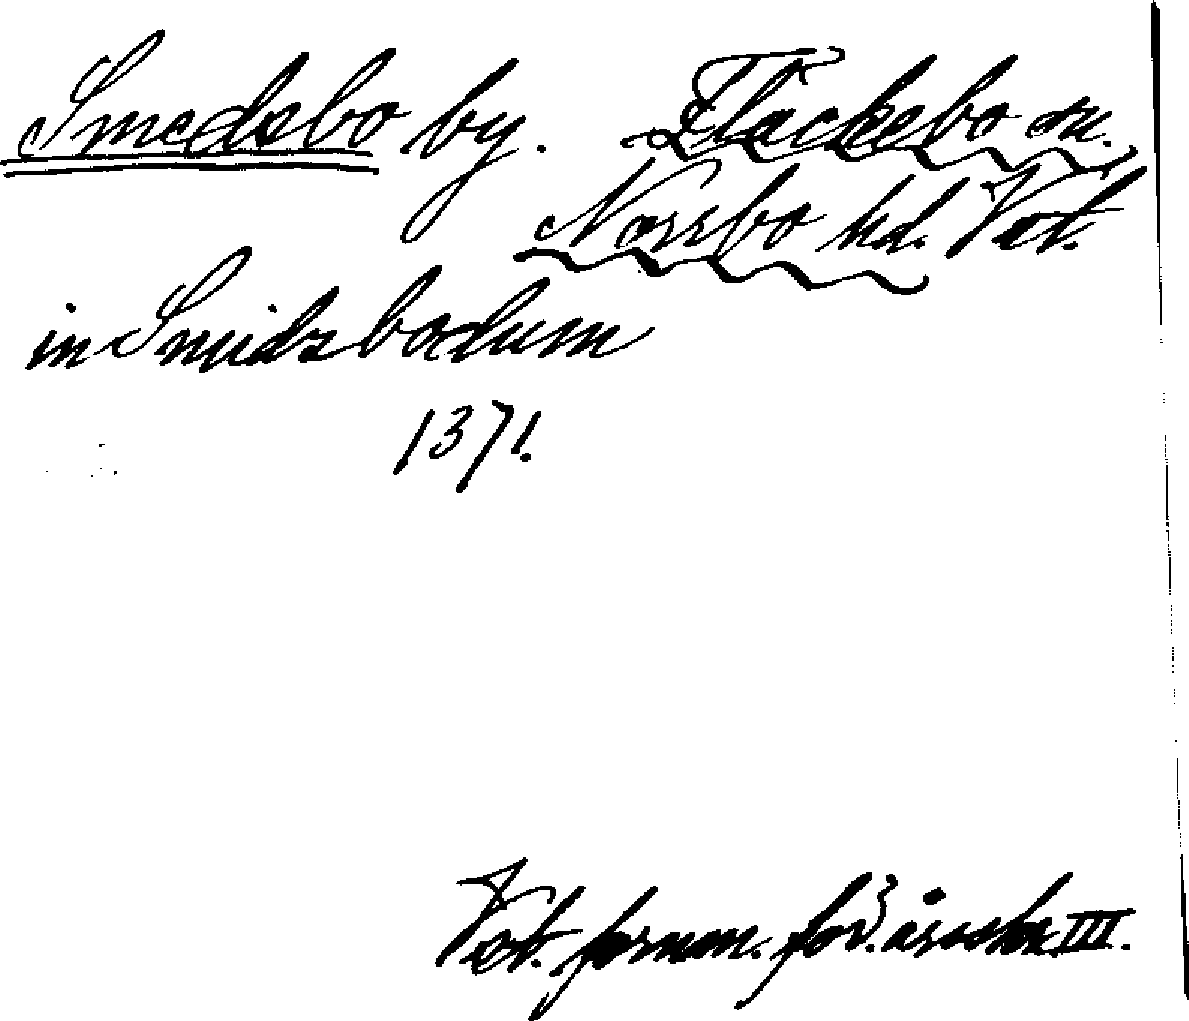 Smedsbo by. Fläckebo sn.
Norrbo hd. Vstl.
in Smidzbodum
1371.
Vstl. fornm. för. årsskr. III.